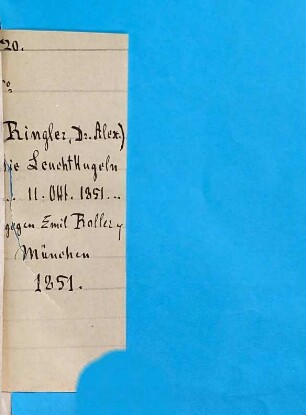 20.
Ringler, Dr. Alex.)
Die Leuchtkugeln
.. 11. Okt. 1851...
gegen Emil Roller
München
1851.